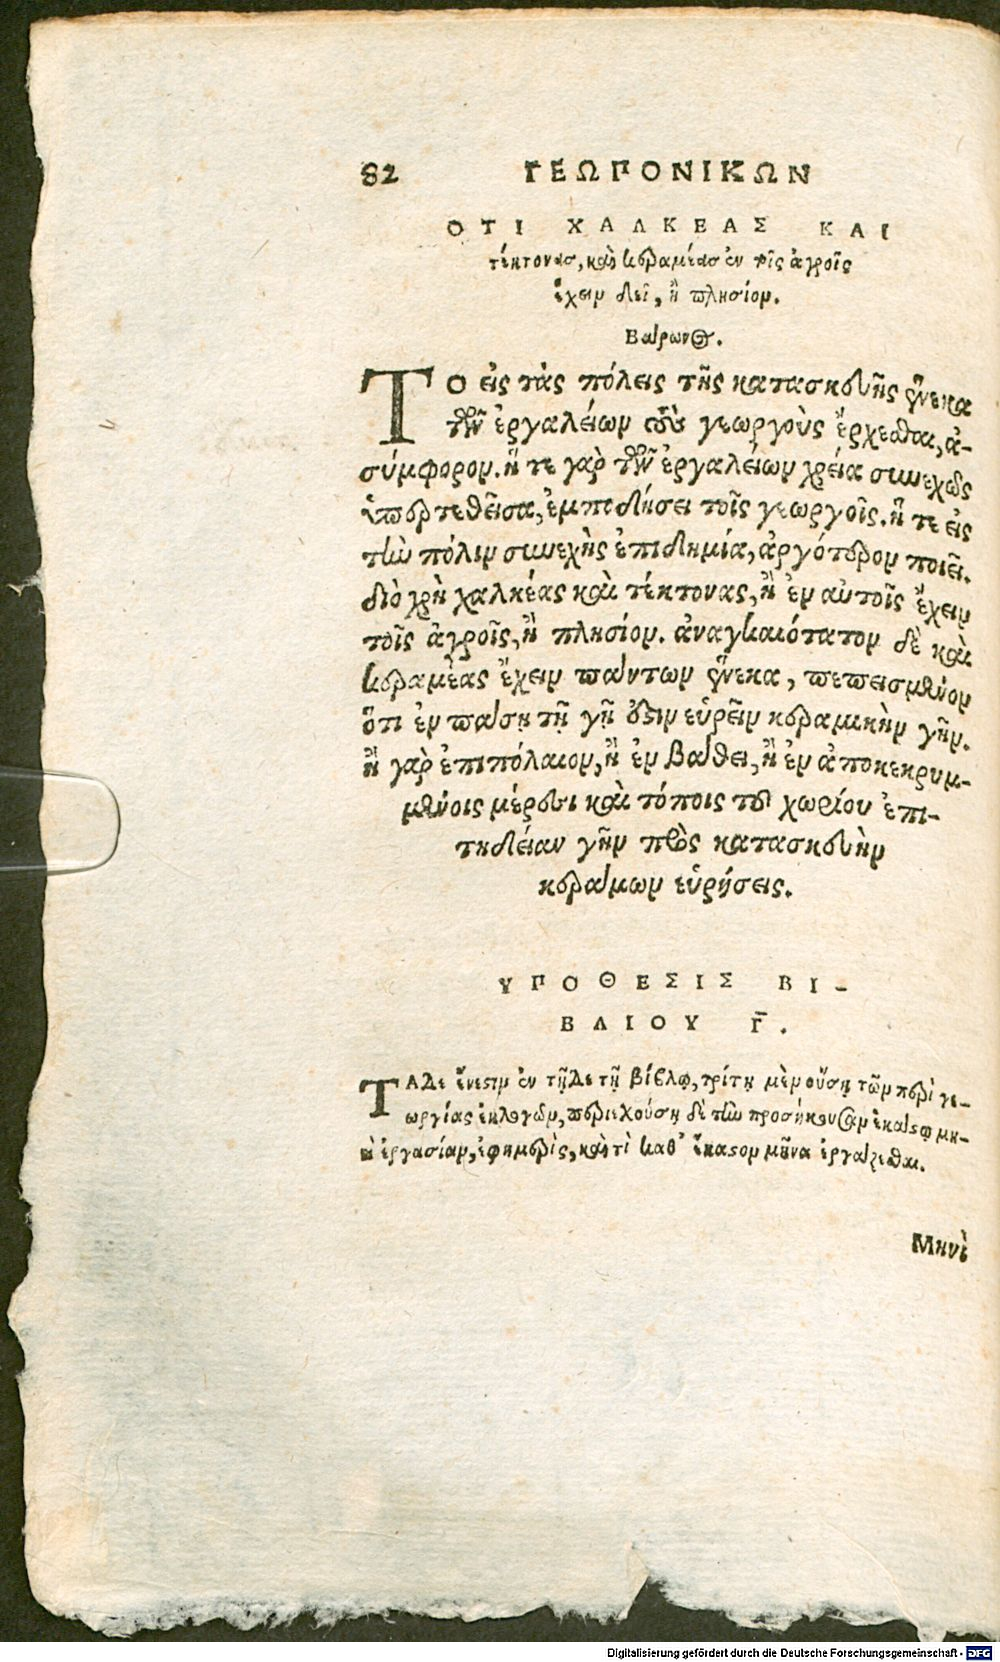 82 ΓΕΩΠΟΝΙΚΩΝ
ΟΤΙ ΧΑΛΚΕΑΣ ΚΑΙ
τέκτονας, καὶ κεραμέας ἐν τοῖς ἀγροῖς
ἔχειν δεῖ, ἢ πλησίον.
Βάρωνος.
ΤΟ εἰς τὰς πόλεις τῆς κατασκευῆς ἕνεκα
τῶν ἐργαλείων τοὺς γεωργοὺς ἔρχεσθαι, ἀ-
σύμφορον. ἥ τε γὰρ τῶν ἐργαλείων χρεία συνεχῶς
ὑπερτεθεῖσα, ἐμποδήσει τοῖς γεωργοῖς. ἥ τε εἰς
τὴν πόλιν συνεχὴς ἐπιδημία, ἀργότερον ποιεῖ.
διὸ χρὴ χαλκέας καὶ τέκτονας, ἢ ἐν αὐτοῖς ἔχειν
τοῖς ἀγροῖς, ἢ πλησίον. ἀναγκαιότατον δὲ καὶ
κεραμέας ἔχειν πάντων ἕνεκα, πεπεισμένον
ὅτι ἐν πάσῃ τῇ γῇ ἔστιν εὑρεῖν κεραμικὴν γῆν.
ἢ γὰρ ἐπιπόλαιον, ἢ ἐν βάθει, ἢ ἐν ἀποκεκρυμ-
μένοις μέρεσι καὶ τόποις τοῦ χωρίου ἐπι-
τηδείαν γῆν πρὸς κατασκευὴν
κεράμων εὑρήσεις.
ΥΠΟΘΕΣΙΣ ΒΙ-
ΒΛΙΟΥ Γ̅.
ΤΑΔε ἔνεστιν ἐν τῇδε τῇ βίβλῳ, τρίτῃ μὲν οὔσῃ τῶν περὶ γε-
ωργίας ἐκλογῶν, περιεχούσῃ δὲ τὴν προσήκουσαν ἑκάστῳ μη-
νὶ ἐργασίαν, ἐφημερὶς, καὶ τὶ καθ’ ἕκαστον μῆνα ἐργάζεσθαι.
Μηνὶ
Digitalisierung gefördert durch die Deutsche Forschungsgemeinschaft - DFG